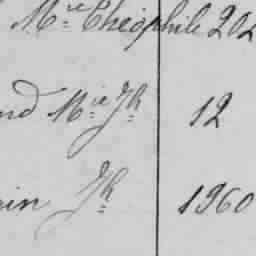 Mie Théophile 202
nd Mie Jh 12
in Jh 1960